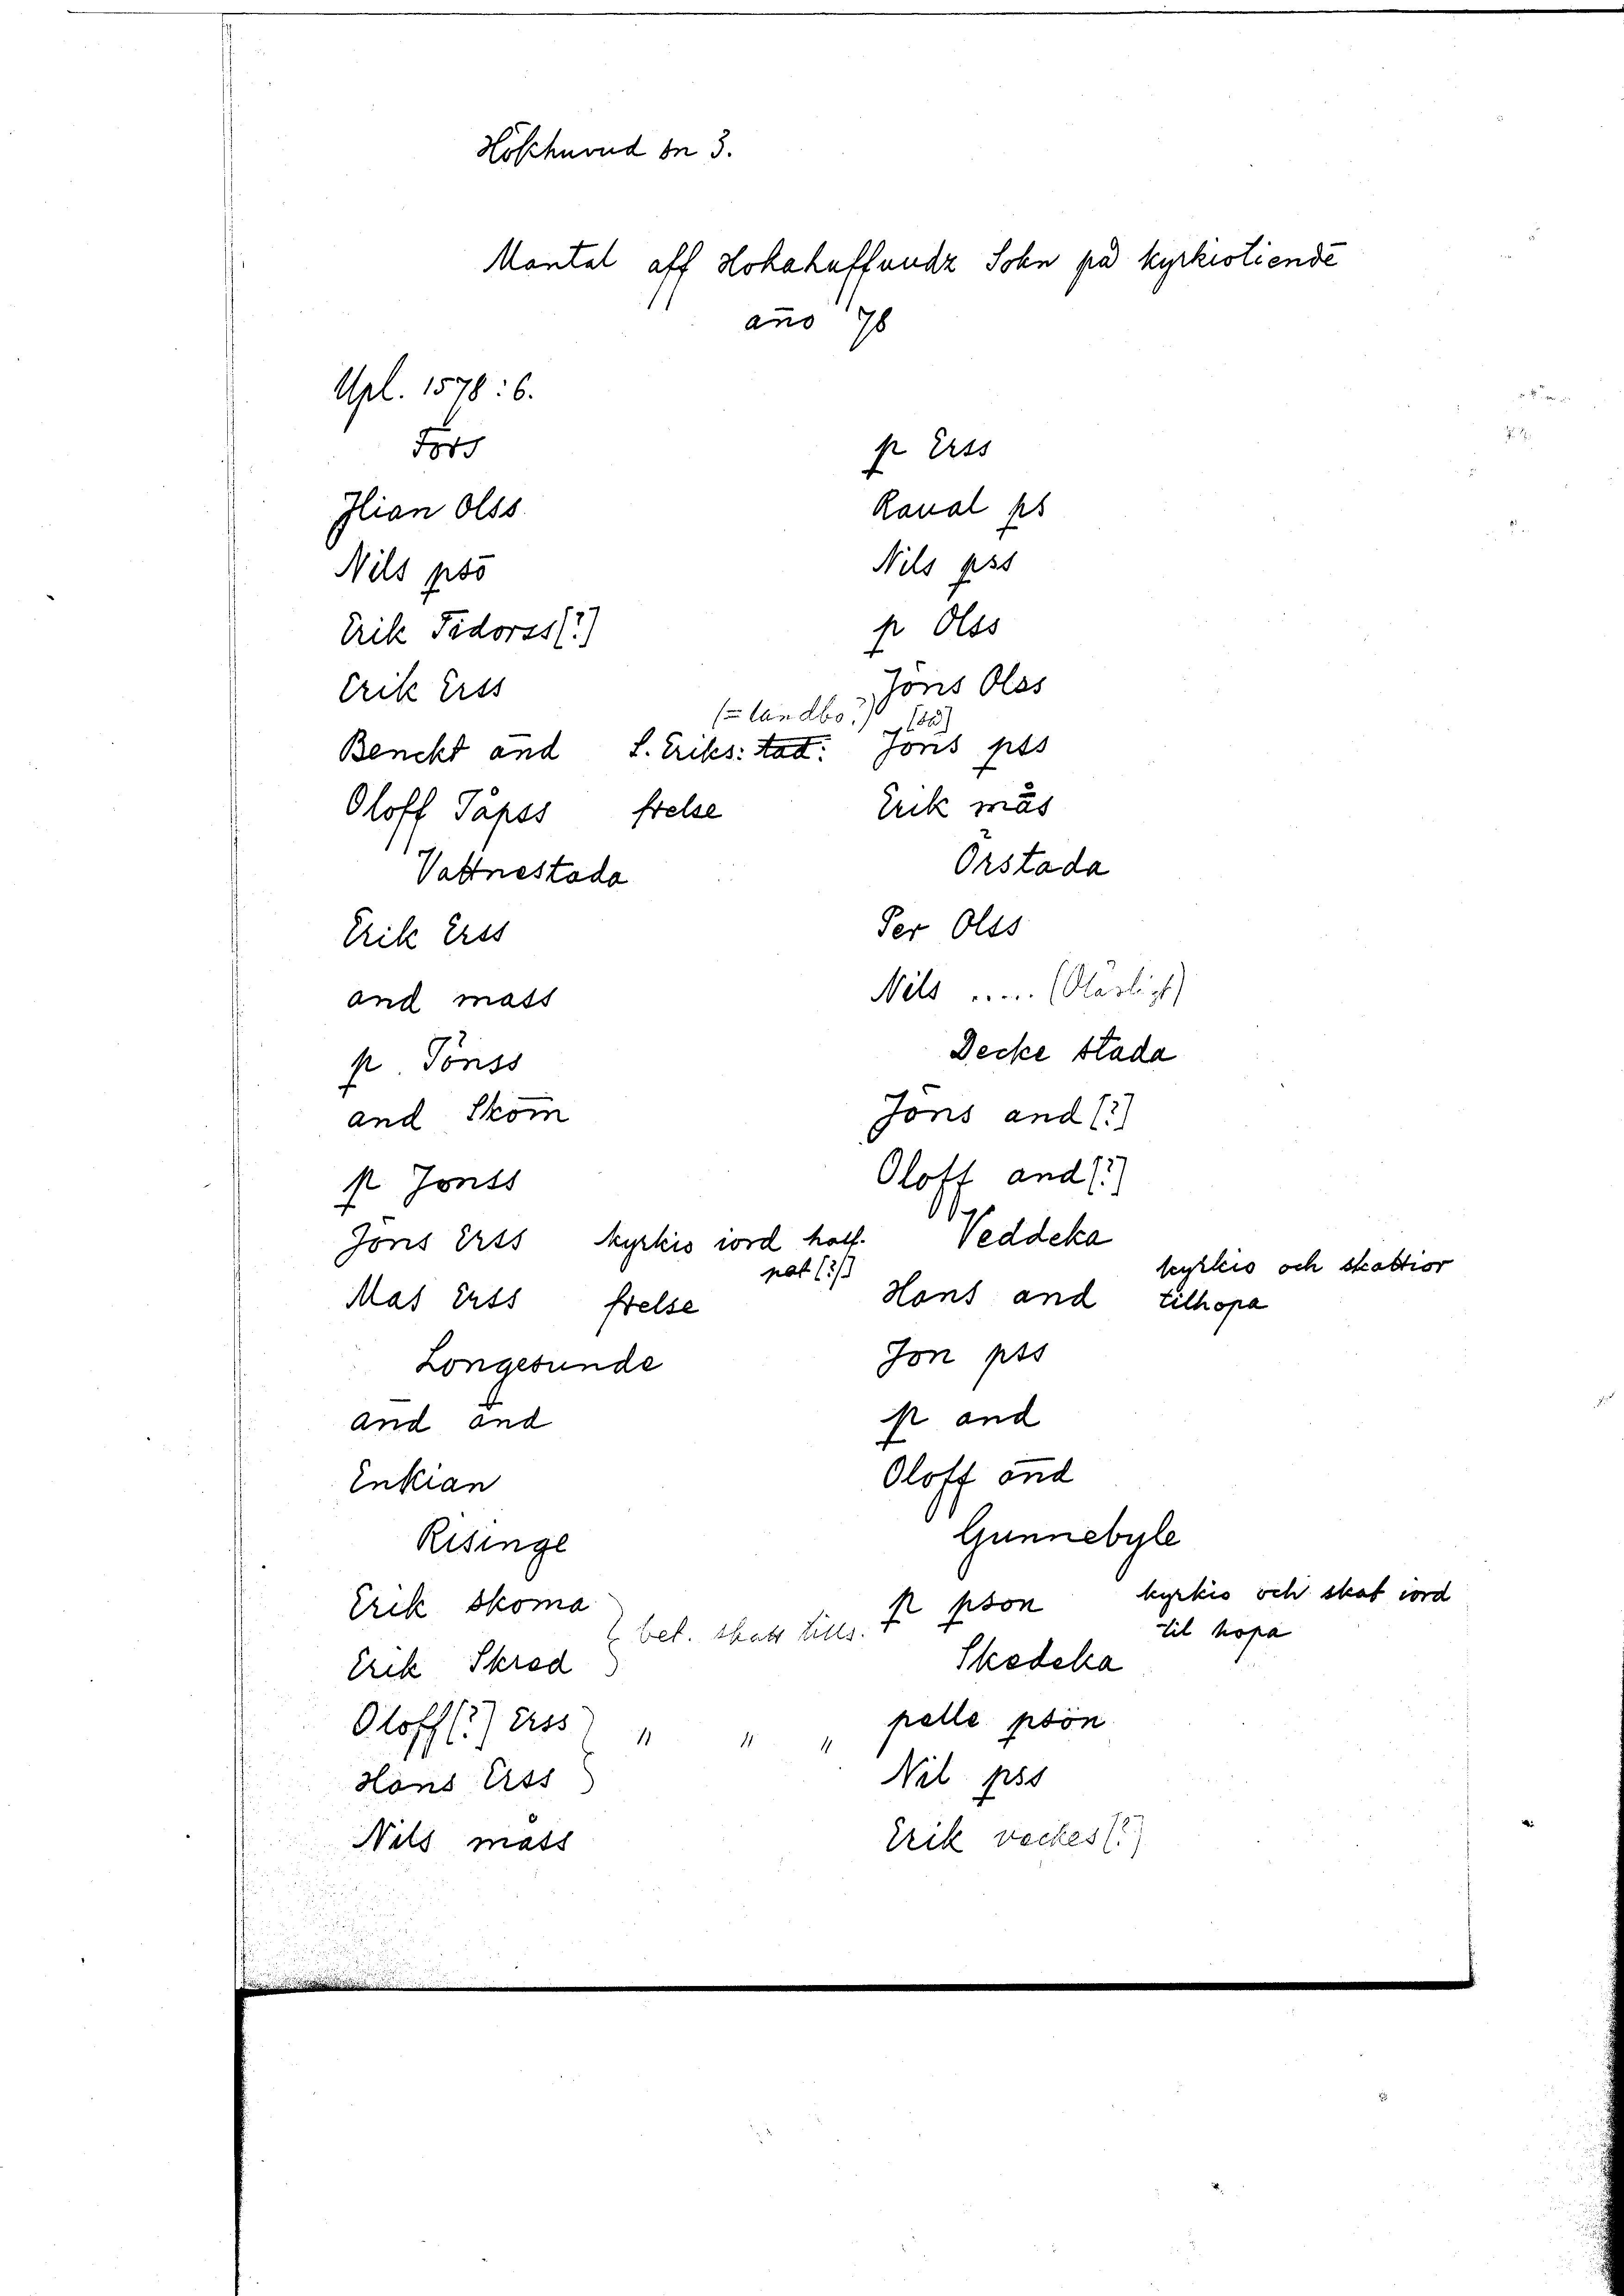 Höffhuvud bn 3.
Mantal aff Hokahuffvudz Sokn på kyrkiotiende
año 78
Upl. 1578:6.
Fors
Jlian Olss
Nils psō
Erik Fidorss(?)
Erik Erss
(= landbo?)
Benckt and S. Eriks: tad:
Oloff Påpss frelse
Vattnestada
Erik Erss
and mass
p. Jönss
and Skom̄
p Jonss
Jöns Erss kyrkio iord half.
pat [?]
Mas Erss frelse
Longesunde
and and
Enkian
Risinge
Erik skoma
bet. skatt tills.
Erik Skrad
Oloff(?) Erss " " "
Hans Erss
Nils måss
p Erss
Raval ps
Nils pss
p Olss
Jöns Olss
Jöns pss
Erik mås
Örstada
Per Olss
Nils ..... (Oläsligt)
Decke stada
Jöns and [?]
Oloff and [?]
Veddeka
kyrkio och skattior
Hans and tilhopa
Jon pss
p and
Oloff and
Gunnebyle
p pson kyrkio och skat iord
til hopa
Skedeka
pelle psōn
Nil pss
Erik veckes(?)